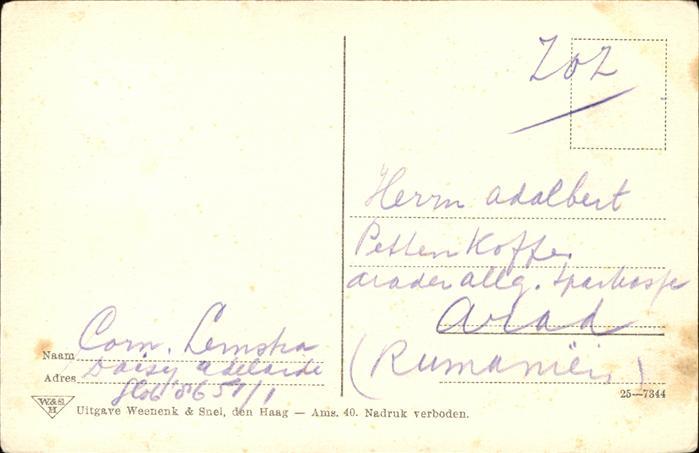 ZoZ
Herrn Adalbert
Pettenkoffer
Arader allg. Sparkasse
Arad
(Rumaniën)
Naam Corn. Lemska
Daisy Adelaide
Adres
W&S. H
25—7344
Uitgave Weenenk & Snel, den Haag — Ams. 40. Nadruk verboden.